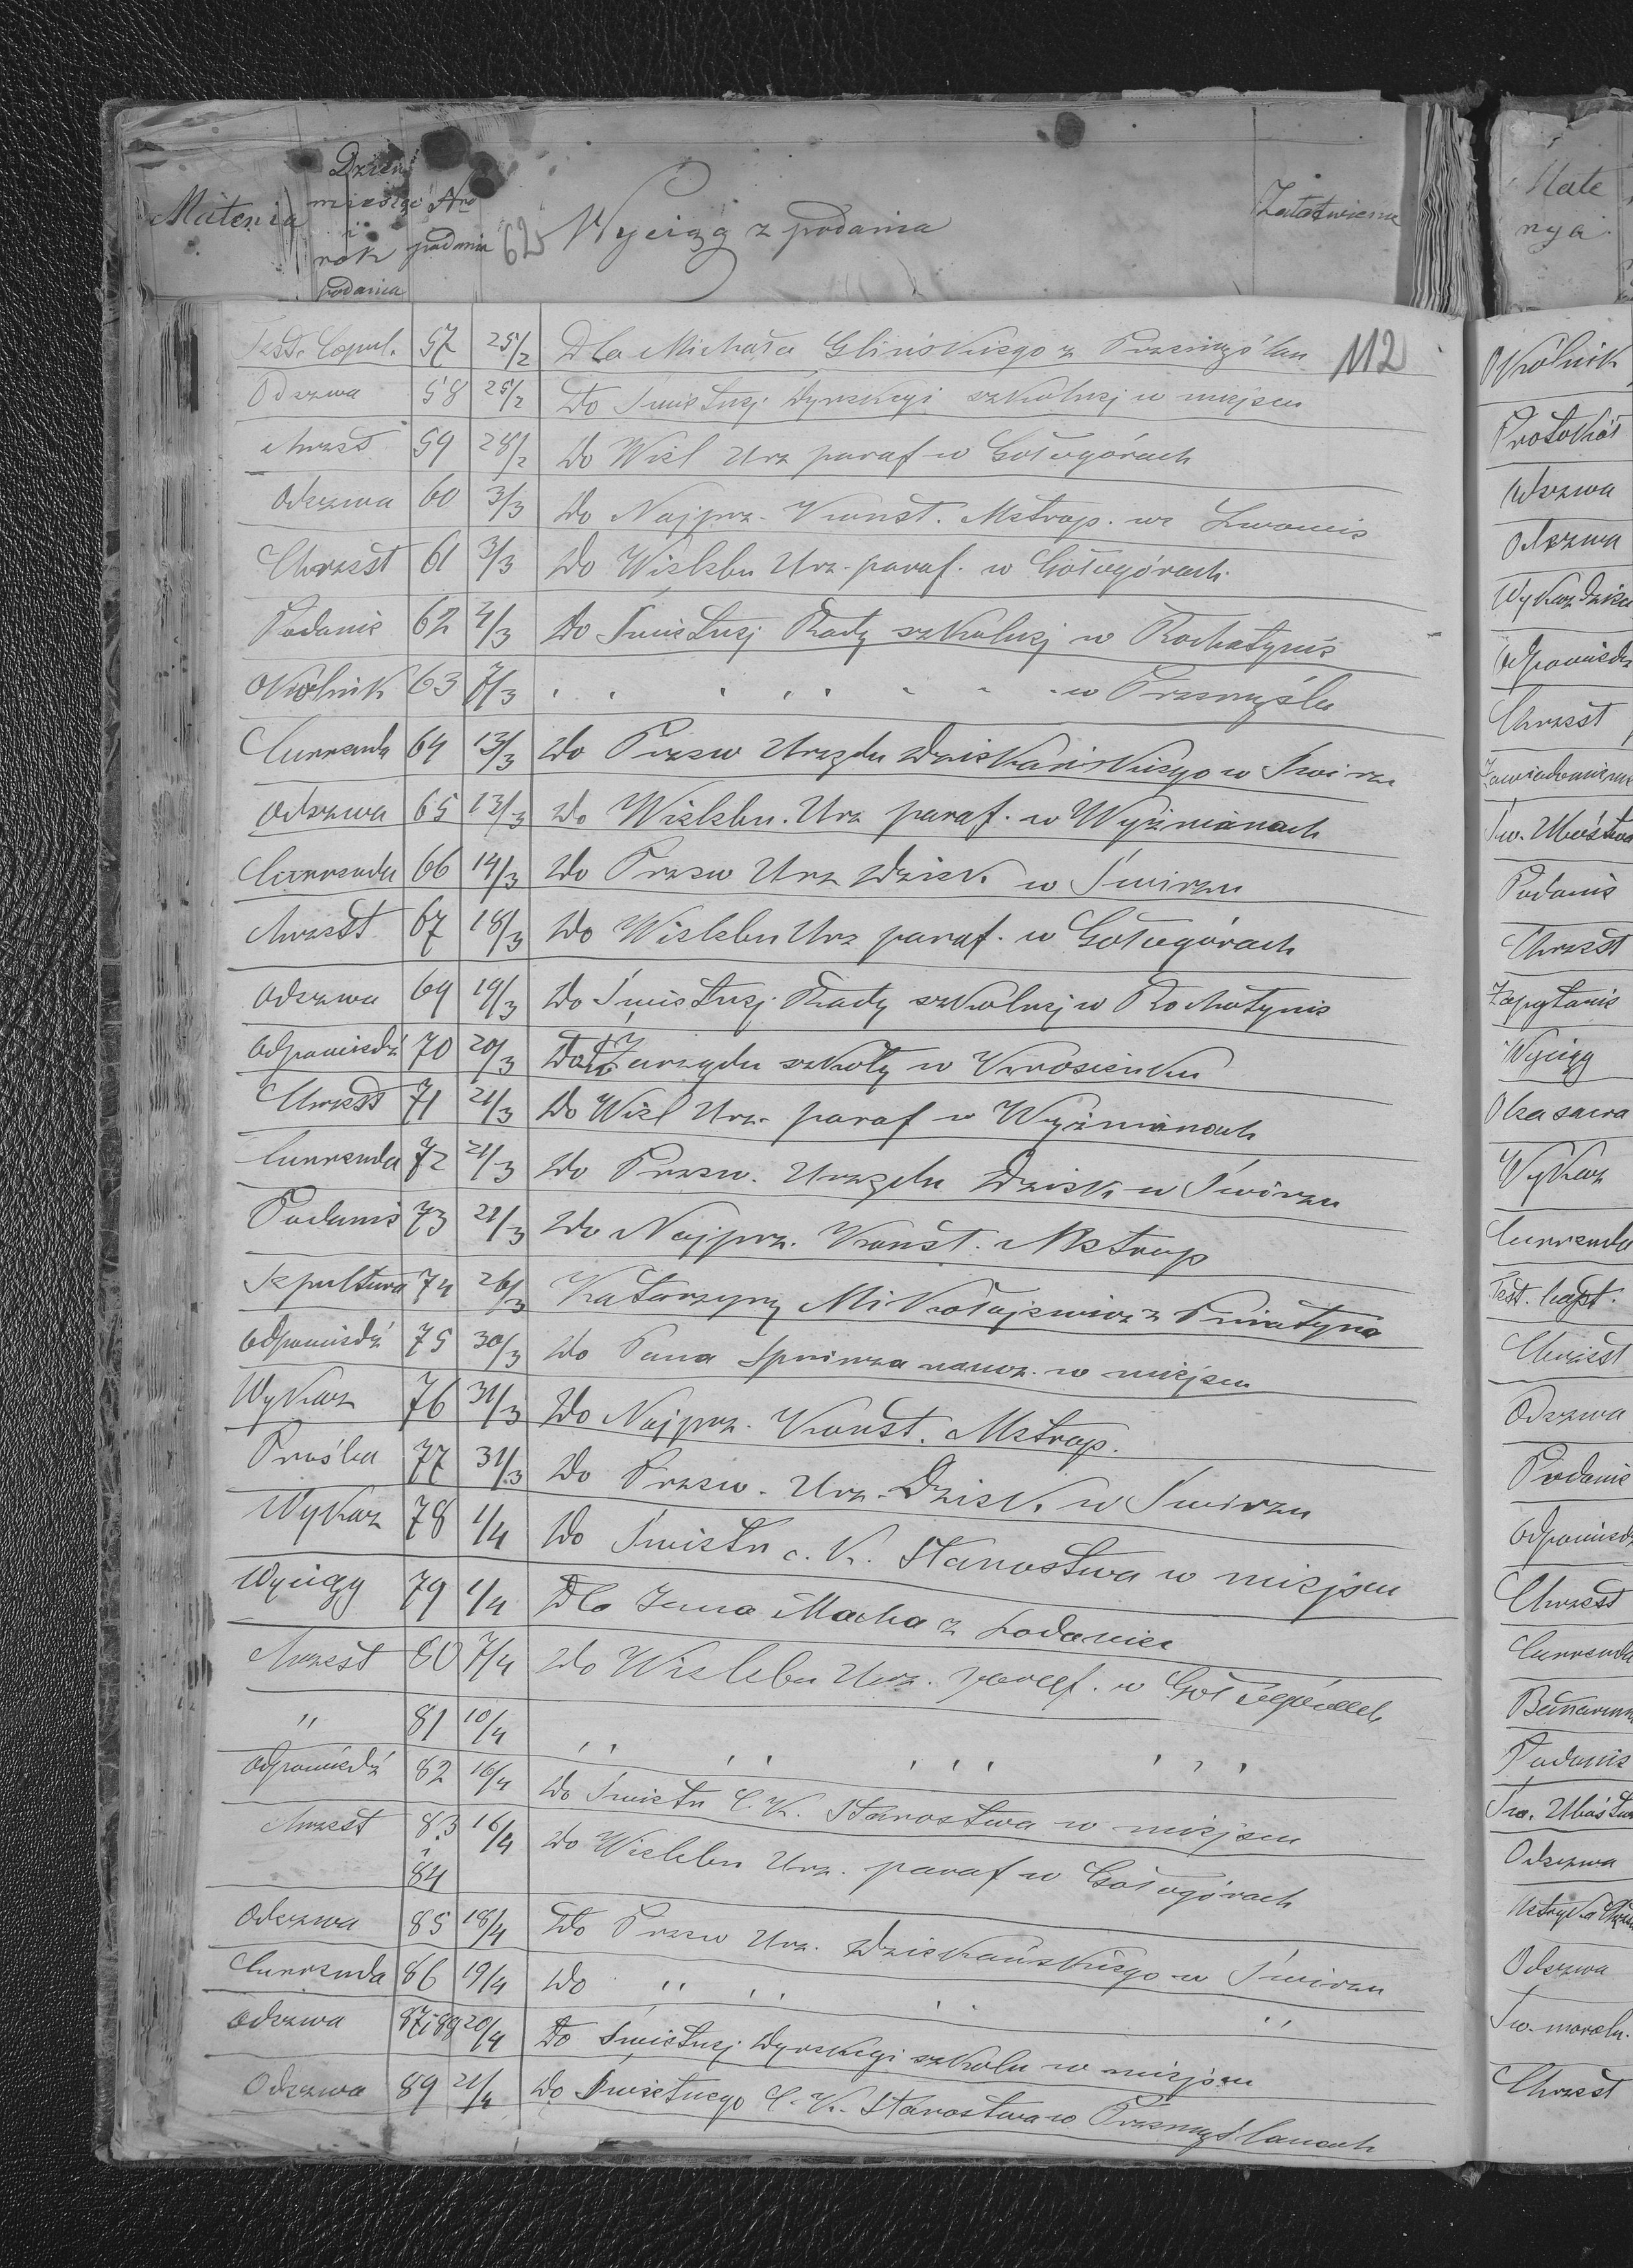 Materia
Dzień
miesiąc
i
rok
podania
Nro
podania
62
Wyciąg z podania
Załatwienie
112
Test. Copul. 57 25/2 Dla Michała Glińskiego z Przemyślan
Odezwa 58 25/2 Do Świetnej Dyrekcyi szkolnej w miejscu
Chrzest 59 28/2 Do Wiel Urz paraf w Gołogórach
Odezwa 60 3/3 Do Najprz. Konst. Metrop. we Lwowie
Chrzest 61 3/3 Do Wielebn Urz. paraf. w Gołogórach
Podanie 62 4/3 Do Świetnej Rady szkolnej w Rochatynie
Okólnik 63 7/3 " " " " " " " w Przemyślu
Currenda 64 13/3 Do Przew Urzędu Dziekańskiego w Świrzu
Odezwa 65 13/3 Do Wielebn. Urz paraf. w Wyżnianach
Currenda 66 14/3 Do Przew Urz Dziek. w Świrzu
Chrzest 67 18/3 Do Wielebn Urz paraf. w Gołogórach
Odezwa 69 19/3 Do Świetnej Rady szkolnej w Rochatynie
Odpowiedź 70 20/3 Do Zarządu szkoły w Krosienku
Chrzest 71 21/3 Do Wiel Urz. paraf w Wyżnianach
Currenda 72 21/3 Do Przew. Urzędu Dziek. w Świrzu
Podanie 73 21/3 Do Najprz. Konst. Metrop
Sepultura 74 26/3 Katarzyny Mikołajewicz z Śniatyna
Odpowiedź 75 30/3 Do Pana naucz. w miejscu
Wykaz 76 31/3 Do Najprz. Konst. Metrop.
Prośba 77 31/3 Do Przew. Urz. Dziek. w Świrzu
Wykaz 78 1/4 Do Świetn c. K. Starostwa w miejscu
Wyciąg 79 1/4 Dla Jana Macha z
Chrzest 80 7/4 Do Wielebn Urz. paraf. w Gołogórach
" 81 10/4 " " " " " " " " " "
Odpowiedź 82 16/4 Do Świetn C. K. Starostwa w miejscu
Chrzest 83 16/4 Do Wielebn Urz. paraf w Gołogórach
i
84
Odezwa 85 18/4 Do Przew Urz. Dziekańskiego w Świrzu
Currenda 86 19/4 Do " " " " " " "
Odezwa 87i89 20/4 Do Świetnej Dyrekcyi szkoln w miejscu
Odezwa 89 21/4 Do Świetnego C. K. Starostwa w Przemyślanach
Mate
rya
Okólnik
Protokół
Odezwa
Odezwa
Wykaz
Odpowiedź
Chrzest
Zawiadomienie
Św. Ubóstwa
Podanie
Chrzest
Zapytanie
Wyciąg
Wykaz
Currenda
Test. bapt.
Chrzest
Odezwa
Podanie
Odpowiedź
Chrzest
Currenda
Podanie
Św. Ubóstwa
Odezwa
Metryka
Odezwa
Św. moraln.
Chrzest